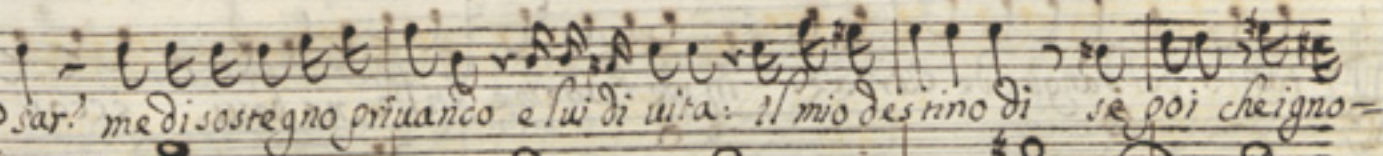 sar? me di sostegno priuando e lui di uita: Il mio destino di se poi che igno-